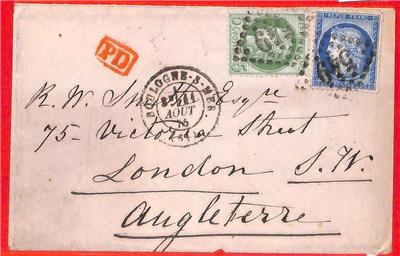 PD
REPUB. FRANC.
BOULOGNE-S-MER
AOUT
R. W. Esqre
75- Victoria Street
London S.W.
Angleterre